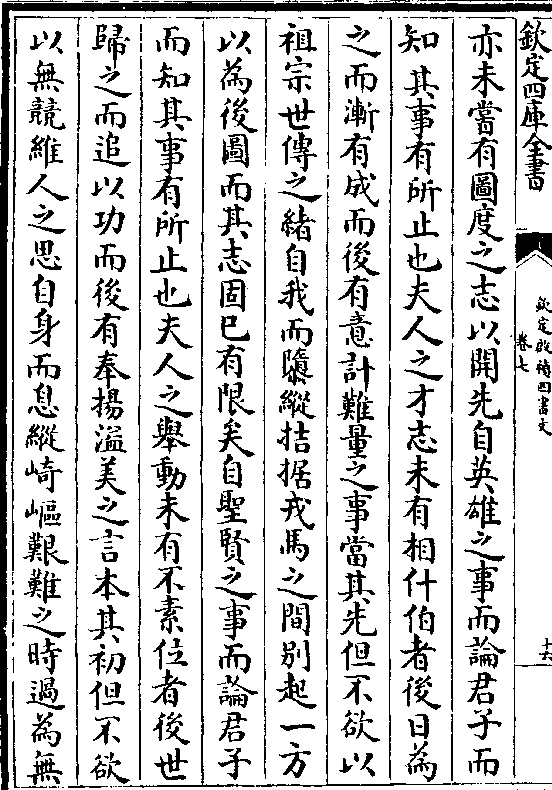 欽定四庫全書
欽定啟禎四書文
卷七
十六
亦未嘗有圖度之志以開先自英雄之事而論君子而
知其事有所止也夫人之才志未有相什伯者後日為
之而漸有成而後有意計難量之事當其先但不欲以
祖宗世傳之緒自我而隳縱拮据戎馬之間別起一方
以為後圖而其志固已有限矣自聖賢之事而論君子
而知其事有所止也夫人之舉動未有不素位者後世
歸之而追以功而後有奉揚溢美之言本其初但不欲
以無競維人之思自身而息縱崎嶇艱難之時過為無